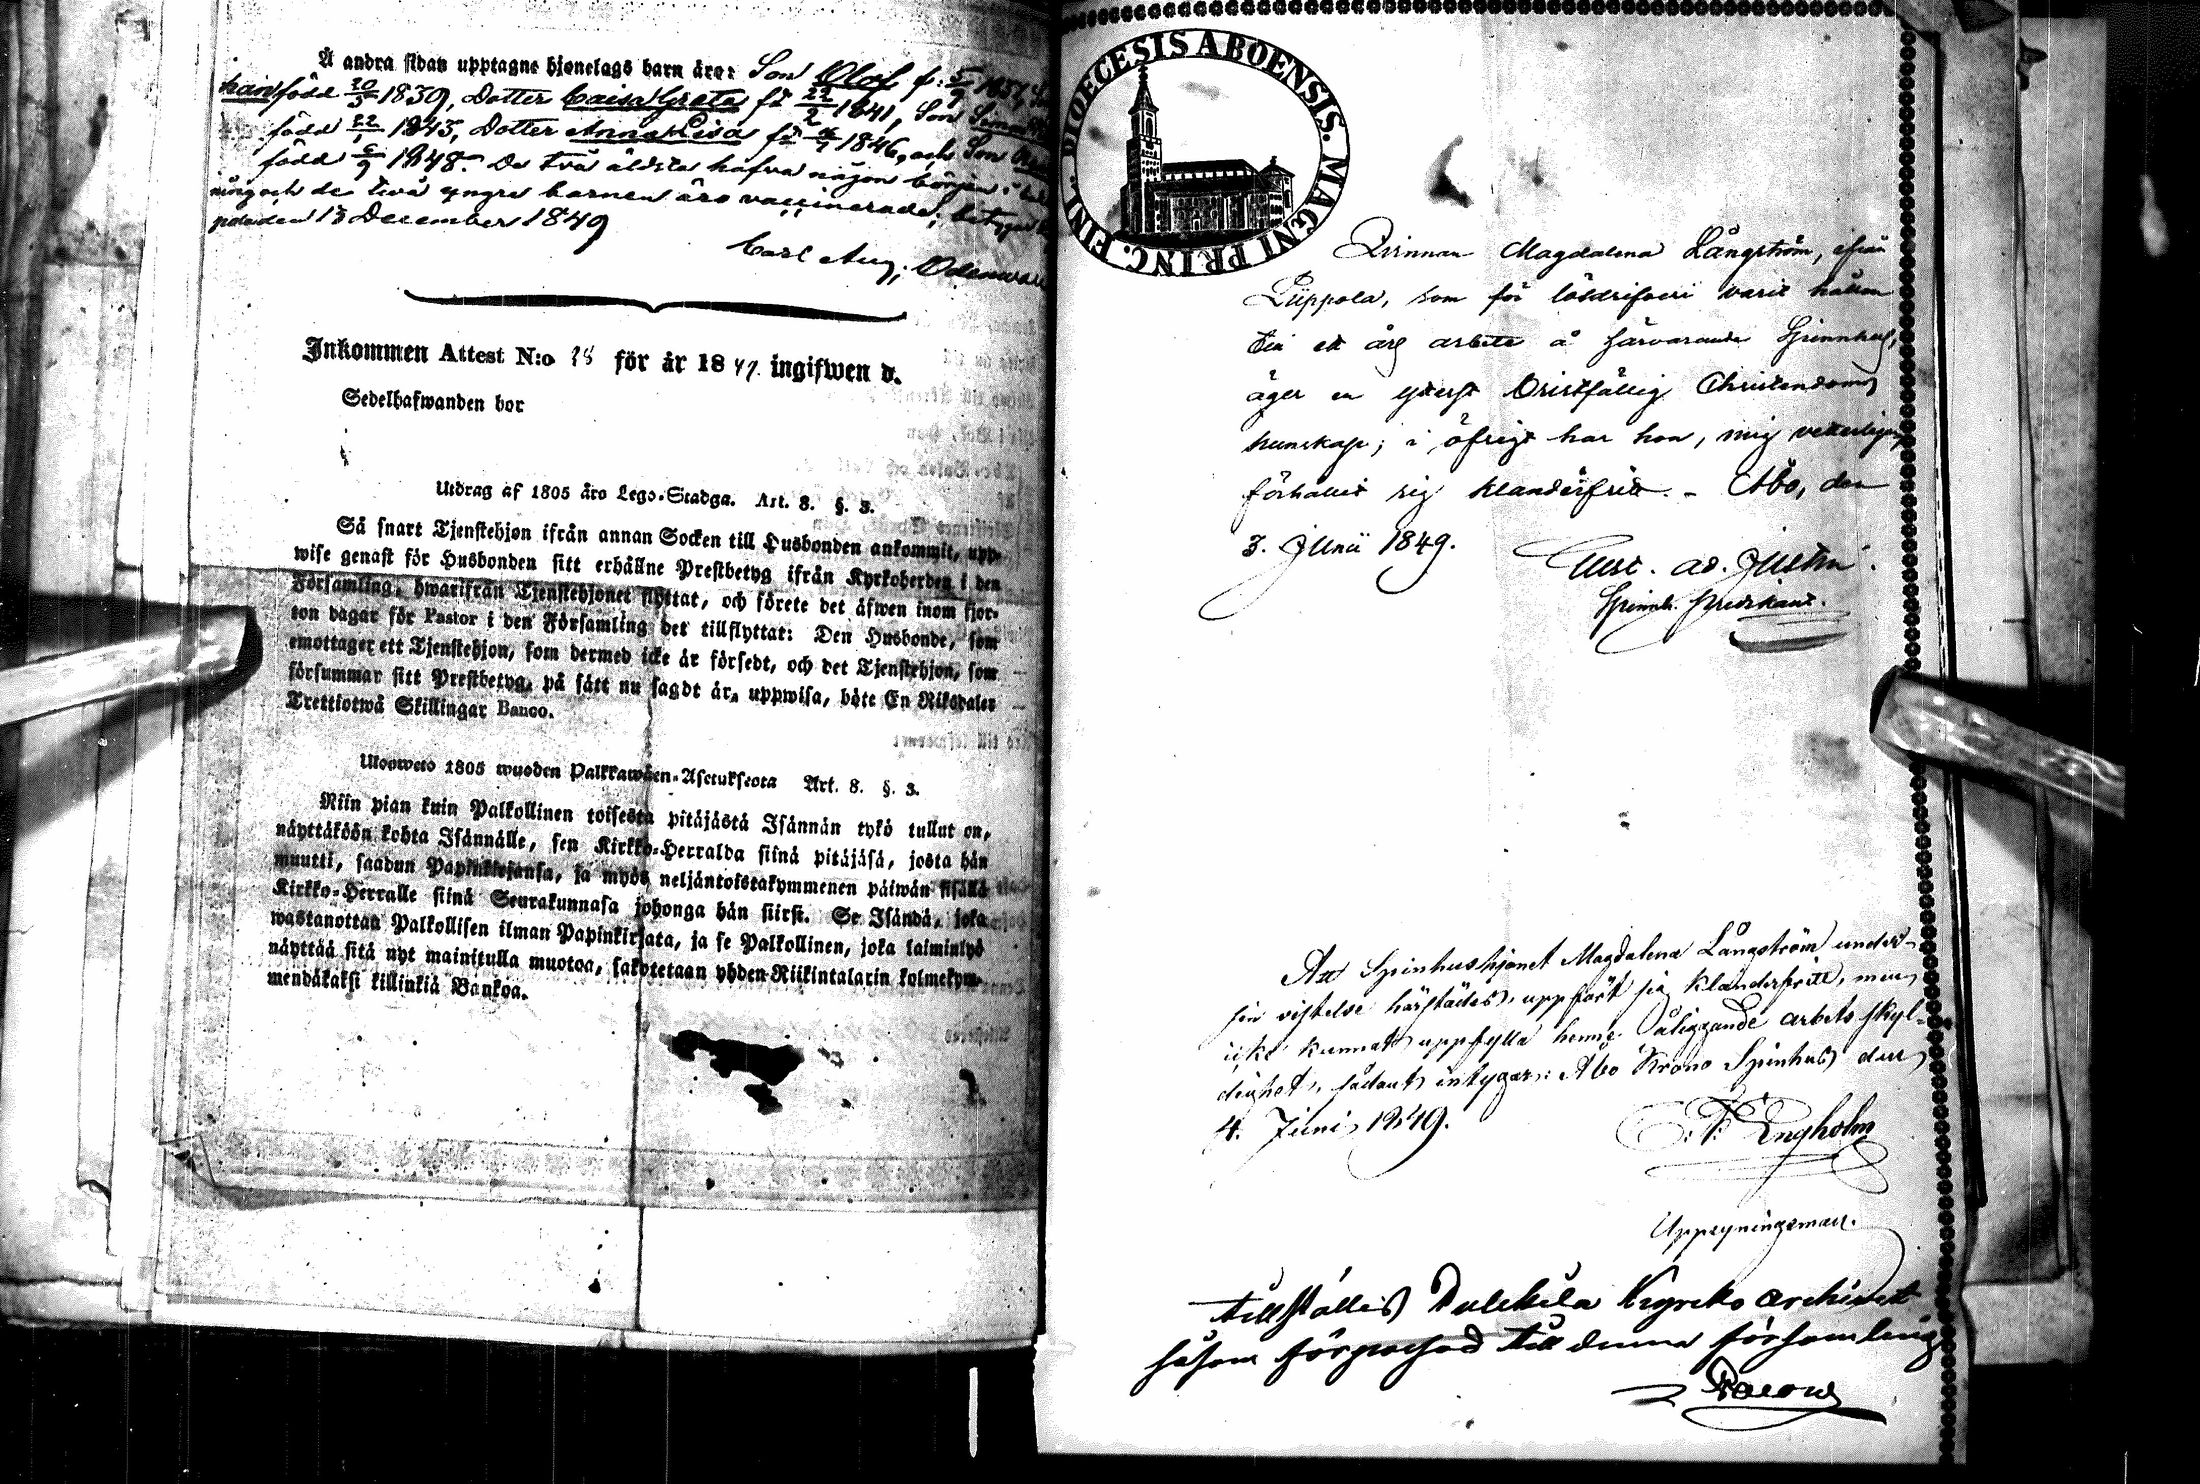 Å andra sidan upptagne hjonelags barn äro: Son Olof f:
född 20/5 1839, Dotter Caisa Greta fö 22/2 1841, Son
född 22/1 1843, Dotter Anna Lisa fö 1846, och Son
född 1848. De två äldsta hafva någon början i
och de två yngre barnen äro vaccinerade; betygar
den 13 December 1849
Carl Aug:
Inkommen Attest N:o 28 för år 1849 ingifwen d.
Sedelhafwanden bor
Utdrag af 1805 åro Lego-Stadga. Art. 8. §. 3.
Så snart Tjenstehjon ifrån annan Socken till Husbonden ankommit, upp-
wise genast för Husbonden sitt erhållne Prestbetyg ifrån Kyrkoherden i den
Församling, hwarifrån Tjenstehjonet flyttat, och förete det äfwen inom fjor-
ton dagar för Pastor i den Församling det tillflyttat: Den Husbonde, som
emottager ett Tjenstehjon, som dermed icke är försedt, och det Tjenstehjon, som
försummar sitt Prestbetyg, på sätt nu sagdt är, uppwisa, böte En Riksdaler
Trettiotwå Skillingar Banco.
Ulosweto 1805 wuoden Palkkawäen-Asetuksesta Art. 8. §. 3.
Niin pian kuin Palkollinen toisesta pitäjästä Isännän tykö tullut on,
näyttäköön kohta Isännälle, sen Kirkko-Herralda siinä pitäjäsä, josta hän
muutti, saadun Papinkirjansa, ja myös neljäntoistakymmenen päiwän sisällä
Kirkko-Herralle siinä Seurakunnasa johonga hän siirsi. Se Isändä, joka
wastanottaa Palkollisen ilman Papinkirjata, ja se Palkollinen, joka laiminlyö
näyttää sitä nyt mainitulla muotoa, sakotetaan yhden Riikintalarin kolmekym-
mendäkaksi killinkiä Bankoa.
DIOECESIS ABOENSIS. MAGNI PRINC. FINL.
Qvinnan Magdalena Långström, ifrån
Piippola, som för lösdrifveri varit hållen
till ett års arbete å härvarande Spinnhus,
äger en ytterst bristfällig Christendoms
kunskap; i öfrigt har hon, mig vetterligen,
förhållit sig klanderfritt. - Åbo, den
3. Junii 1849.
Gust. Ad.
Spinnh. Predikant.
Att Spinhushjonet Magdalena Långström under
sin vistelse härstädes, uppfört sig klanderfritt, men
icke kunnat uppfylla henne åliggande arbets skyl-
dighet, sådant intygar: Åbo Krono Spinhus den
4. Juni 1849.
Engholm
Uppsyningsman.
tillställes Pulkkila Kyrko archivet
såsom förpassad till denna församling